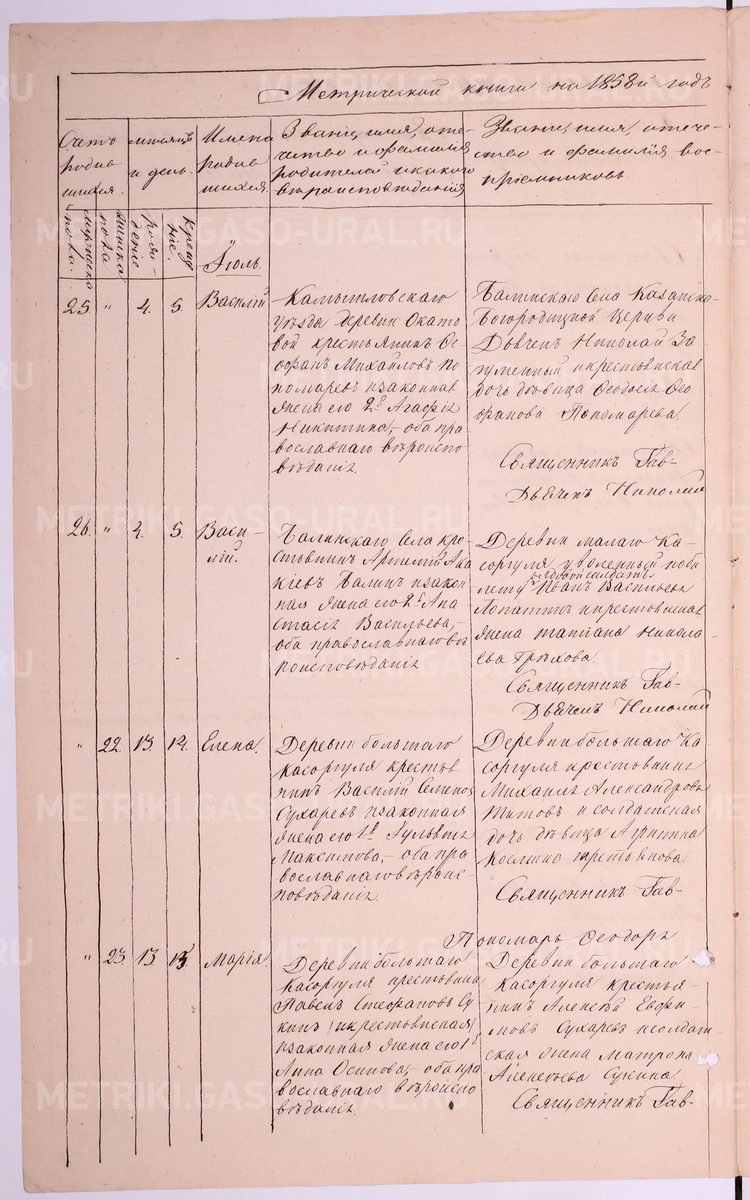 Метрической книги на 1858й годъ
Счетъ родив шихся.
мужеска пола.
женска пола
мѣсяцъ и день.
рожденіе
крещеніе.
Имена родив шихся.
Званіе, имя, отечество и фамилія родителей и какого вѣроисповѣданія
Званіе, имя, отечество и фамилія воспріемниковъ
Іюль.
25. " 4. 5. Василій
Камышловскаго
уѣзда деревни Окато
вой крестьянинъ Ѳе
офанъ Михайловъ По
номаревъ и законная
жена его 2я Агафія
Никитина, - оба пра
вославнаго вѣроиспо
вѣданія.
Балинскаго села Казанско
Богородицкой церкви
Дьячекъ Николай
и крестьянская
дочь дѣвица Ѳеодосія Ѳео
фанова Пономарева.
Священникъ Гав-
Дьячекъ Николай
26. " 4. 5. Васи-
лій.
Балинскаго села кре-
стьянинъ Артемій Ака
кіевъ Балинъ и закон
ная жена его 2я Ана
стасія Васильева, -
оба православнаго вѣ
роисповѣданія
Деревни малаго Ка-
соргуля уволенный по би
лету рядовой солдатъ Иванъ Васильевъ
Лопатинъ и крестьянская
жена Татіана Никола
ева Грѣхова.
Священникъ Гав-
Дьячекъ Николай
" 22. 13. 14. Елена.
Деревни большаго
Касоргуля крестья
нинъ Василій Семеновъ
Сухаревъ и законная
жена его 1я Гульвия
Максимова, - оба пра
вославнаго вѣроис-
повѣданія.
Деревни большаго Ка-
соргуля крестьянинъ
Михаилъ Александровъ
Титовъ и солдатская
дочь дѣвица Агрипина
Космина Третьякова.
Священникъ Гав-
Пономарь Ѳеодоръ
" 23. 13 15. Марія
Деревни большаго
Касоргуля крестьянинъ
Павелъ Стефановъ Су
кинъ и крестьянская
и законная жена его 1я
Анна Осипова, - оба пра
вославнаго вѣроиспо-
вѣданія.
Деревни большаго
Касоргуля крестья-
нинъ Алексѣй Евфи-
мовъ Сухаревъ и солдат-
ская жена Матрона
Алексѣева Сукина.
Священникъ Гав-
METRIKI.GASO-URAL.RU